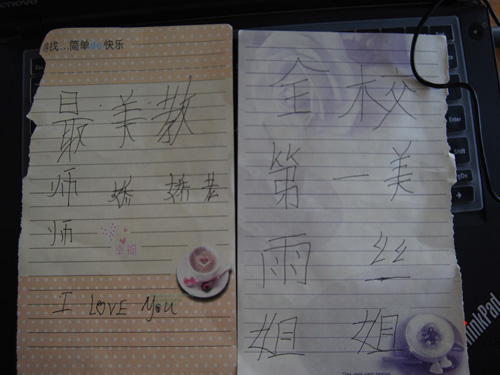 找...简单de快乐
最美教
师 娇娇老
师
幸福
I LOVE You
全校
第一美
雨丝
姐姐
Enter
Shift
hinkPad